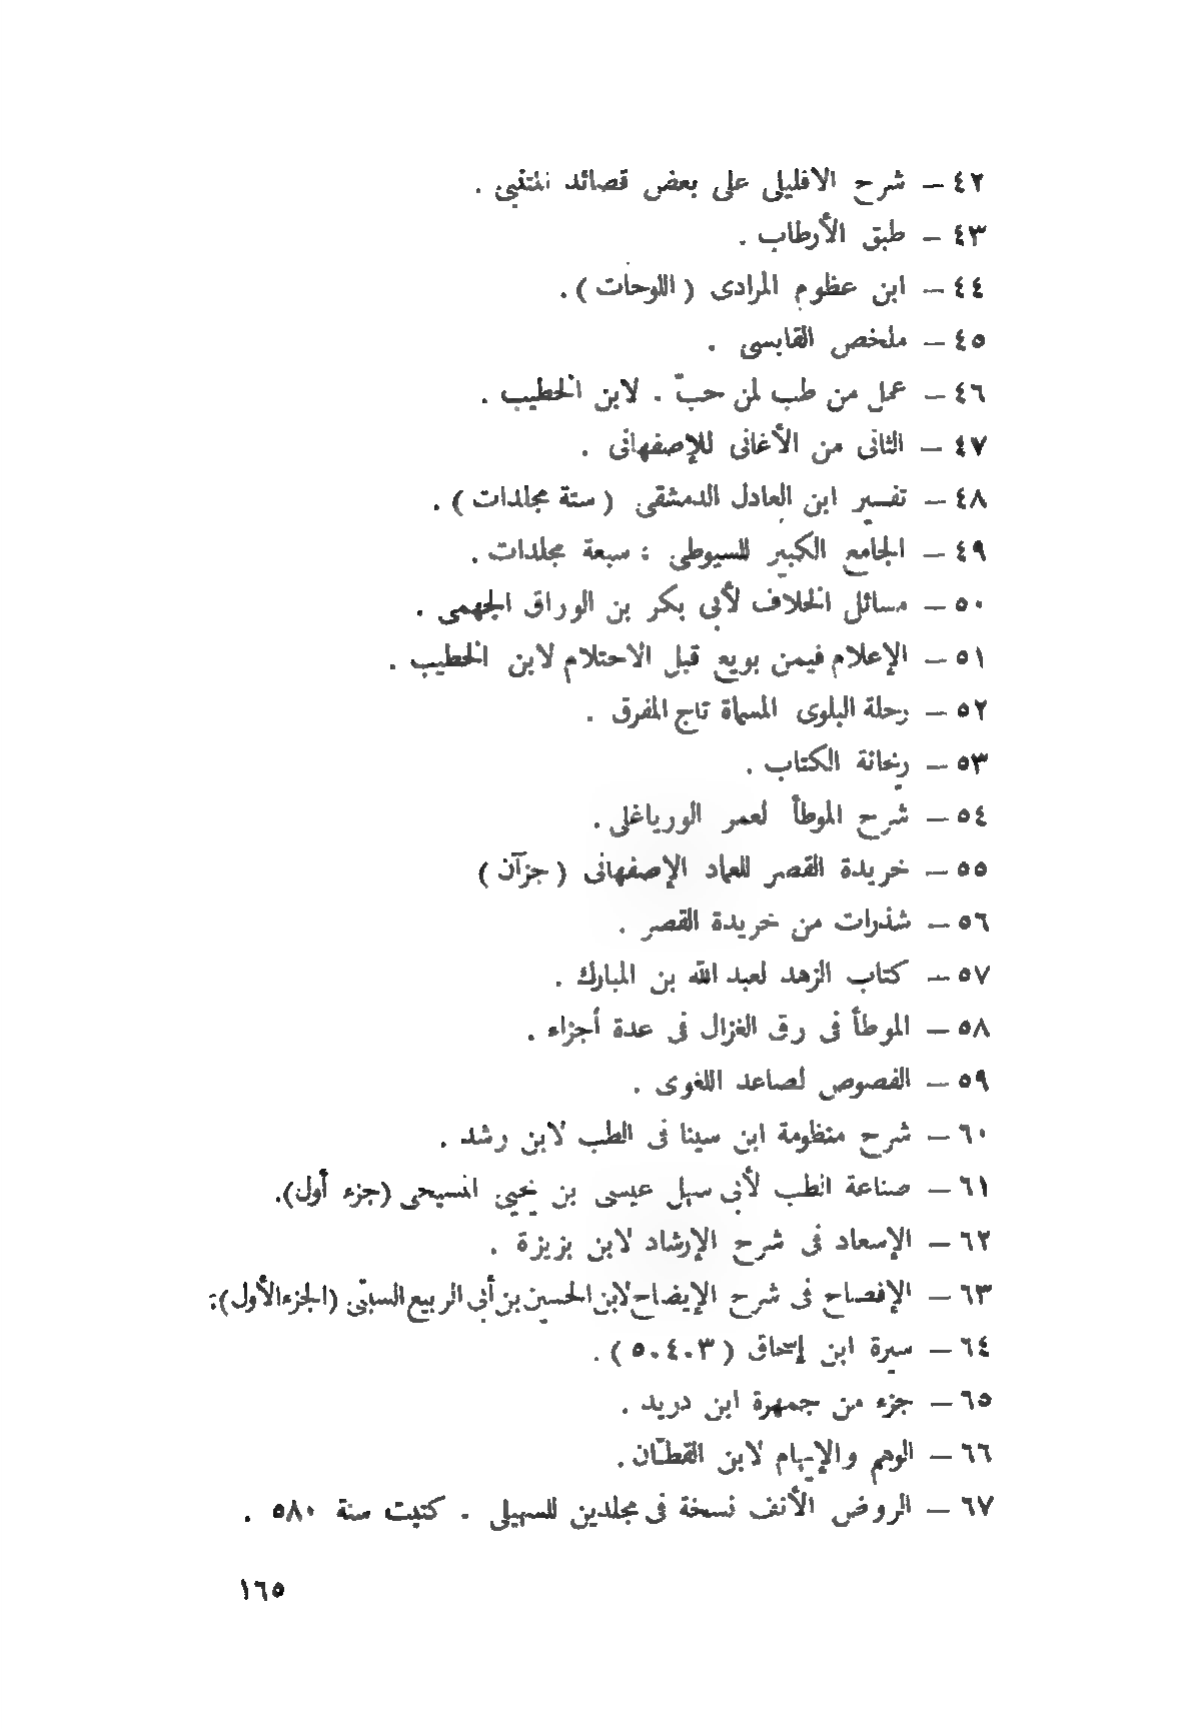 ٤٢ — شرح الافليلى على بعض قصائد المتنبى .
٤٣ — طبق الأرطاب .
٤٤ — ابن عظوم المرادى ( اللوحات ) .
٤٥ — ملخص القابسى .
٤٦ — عمل من طب لمن حبّ . لابن الخطيب .
٤٧ — الثانى من الأغانى للإصفهانى .
٤٨ — تفسير ابن العادل الدمشقى ( ستة مجلدات ) .
٤٩ — الجامع الكبير للسيوطى : سبعة مجلدات .
٥٠ — مسائل الخلاف لأبى بكر بن الوراق الجهمى .
٥١ — الإعلام فيمن بويع قبل الاحتلام لابن الخطيب .
٥٢ — رحلة البلوى المسماة تاج المفرق .
٥٣ — ريحانة الكتاب .
٥٤ — شرح الموطأ لعمر الورياغلى .
٥٥ — خريدة القصر للعماد الإصفهانى ( جزآن )
٥٦ — شذرات من خريدة القصر .
٥٧ — كتاب الزهد لعبد الله بن المبارك .
٥٨ — الموطأ فى رق الغزال فى عدة أجزاء .
٥٩ — الفصوص لصاعد اللغوى .
٦٠ — شرح منظومة ابن سينا فى الطب لابن رشد .
٦١ — صناعة الطب لأبى سهل عيسى بن يحيى المسيحى (جزء أول).
٦٢ — الإسعاد فى شرح الإرشاد لابن بزيزة .
٦٣ — الإفصاح فى شرح الإيضاح لابن الحسين بن أبى الربيع السبتى (الجزء الأول):
٦٤ — سيرة ابن إسحاق ( ٣ . ٤ . ٥ ) .
٦٥ — جزء من جمهرة ابن دريد .
٦٦ — الوهم والإيهام لابن القطّان .
٦٧ — الروض الأنف نسخة فى مجلدين للسهيلى . كتبت سنة ٥٨٠ .
١٦٥